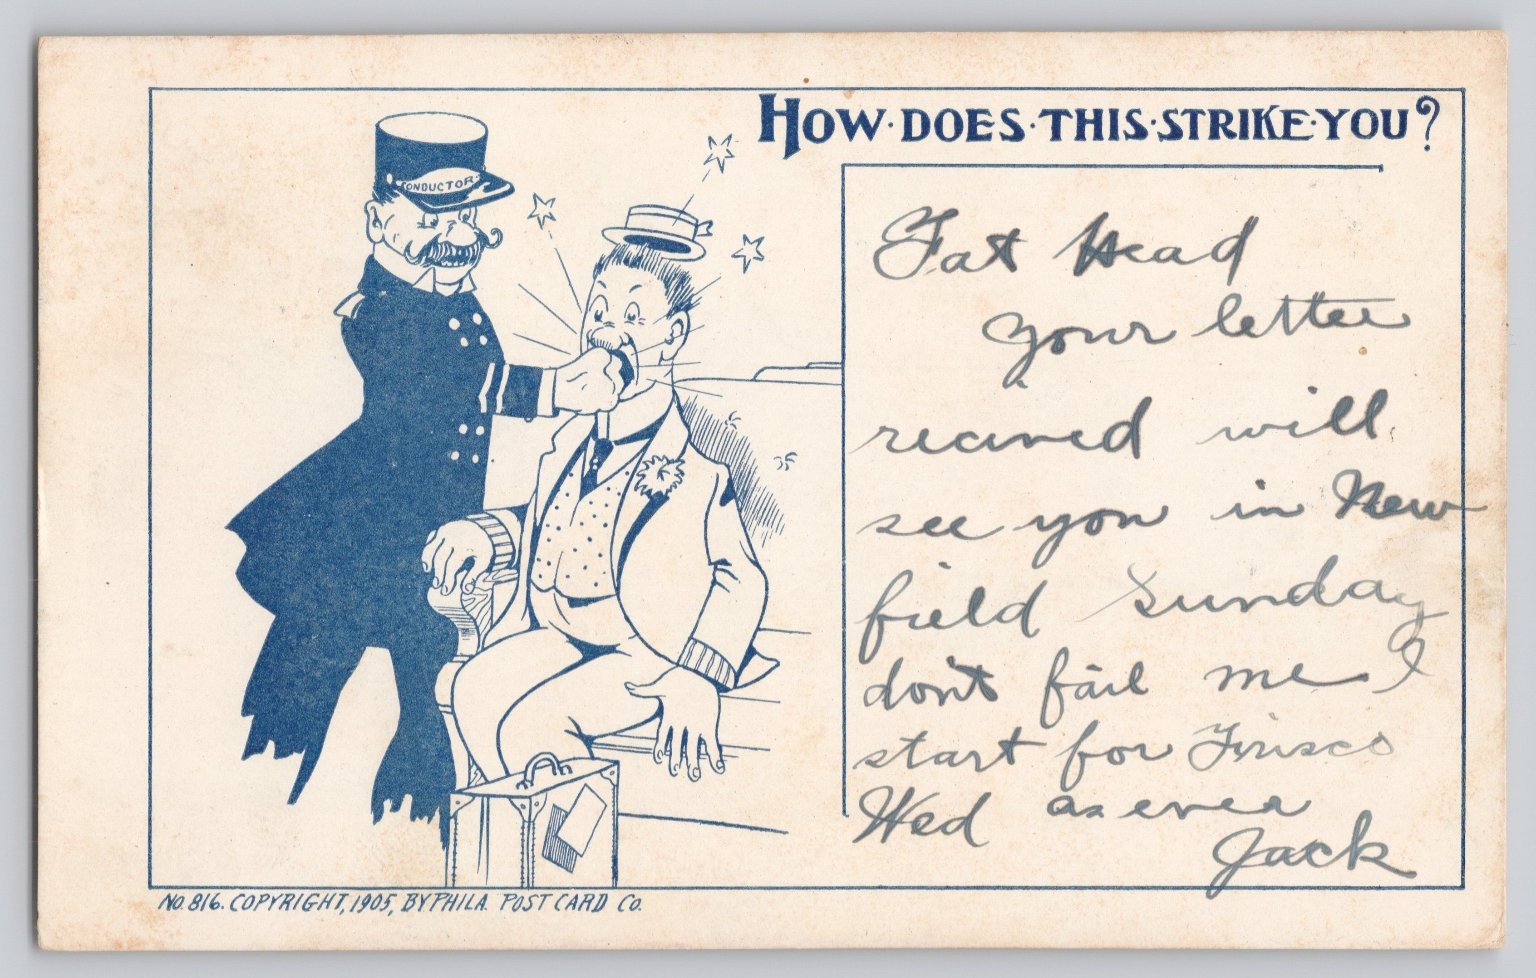 HOW·DOES·THIS·STRIKE·YOU?
CONDUCTOR
Fat Head
Your letter
recieved will
see you in New
field Sunday
don't fail me I
start for Frisco
Wed as ever
Jack
NO. 816. COPYRIGHT, 1905, BY PHILA. POST CARD CO.